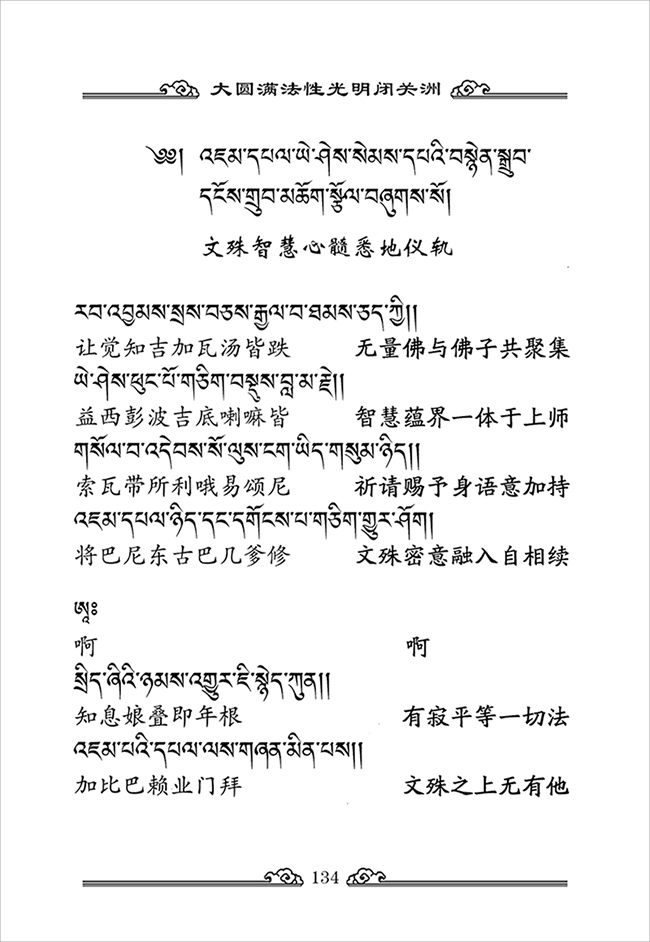 大圆满法性光明闭关洲
༄༅། འཇམ་དཔལ་ཡེ་ཤེས་སེམས་དཔའི་བསྙེན་སྒྲུབ་
དངོས་གྲུབ་མཆོག་སྩོལ་བཞུགས་སོ།
文殊智慧心髓悉地仪轨
རབ་འབྱམས་སྲས་བཅས་རྒྱལ་བ་ཐམས་ཅད་ཀྱི།།
让觉知吉加瓦汤皆跌 无量佛与佛子共聚集
ཡེ་ཤེས་ཕུང་པོ་གཅིག་བསྡུས་བླ་མ་རྗེ།།
益西彭波吉底喇嘛皆 智慧蕴界一体于上师
གསོལ་བ་འདེབས་སོ་ལུས་ངག་ཡིད་གསུམ་ཉིད།།
索瓦带所利哦易颂尼 祈请赐予身语意加持
འཇམ་དཔལ་ཉིད་དང་དགོངས་པ་གཅིག་གྱུར་ཤོག།
将巴尼东古巴几爹修 文殊密意融入自相续
ཨཱཿ
啊 啊
སྲིད་ཞིའི་ཉམས་འགྱུར་ཇི་སྙེད་ཀུན།།
知息娘叠即年根 有寂平等一切法
འཇམ་པའི་དཔལ་ལས་གཞན་མིན་པས།།
加比巴赖业门拜 文殊之上无有他
134